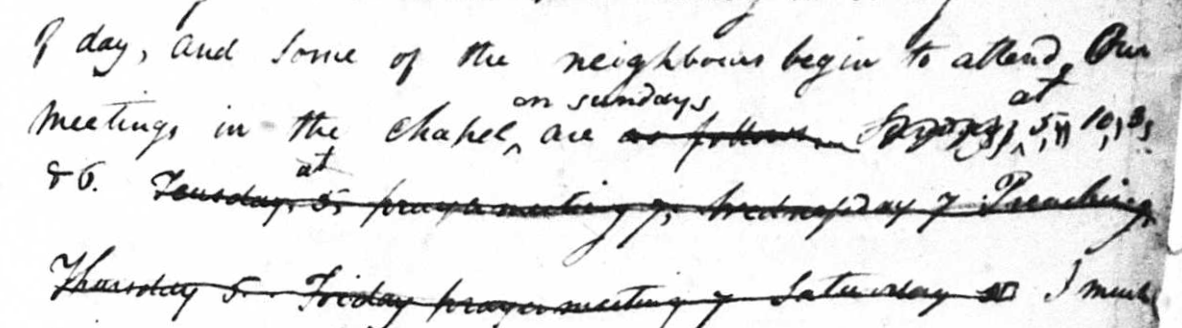 of day, and some of the neighbours begin to attend. Our
meetings in the chapel on sundays are as follows at 5, 10, 3,
& 6. Teusday at 5, prayermeeting 7, Wednesday 7 Preaching
Thursday 5. Friday prayermeeting 7 Saturday I must